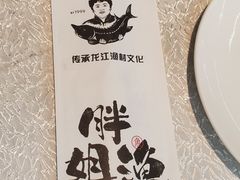 传承龙江渔村文化
胖
姐渔